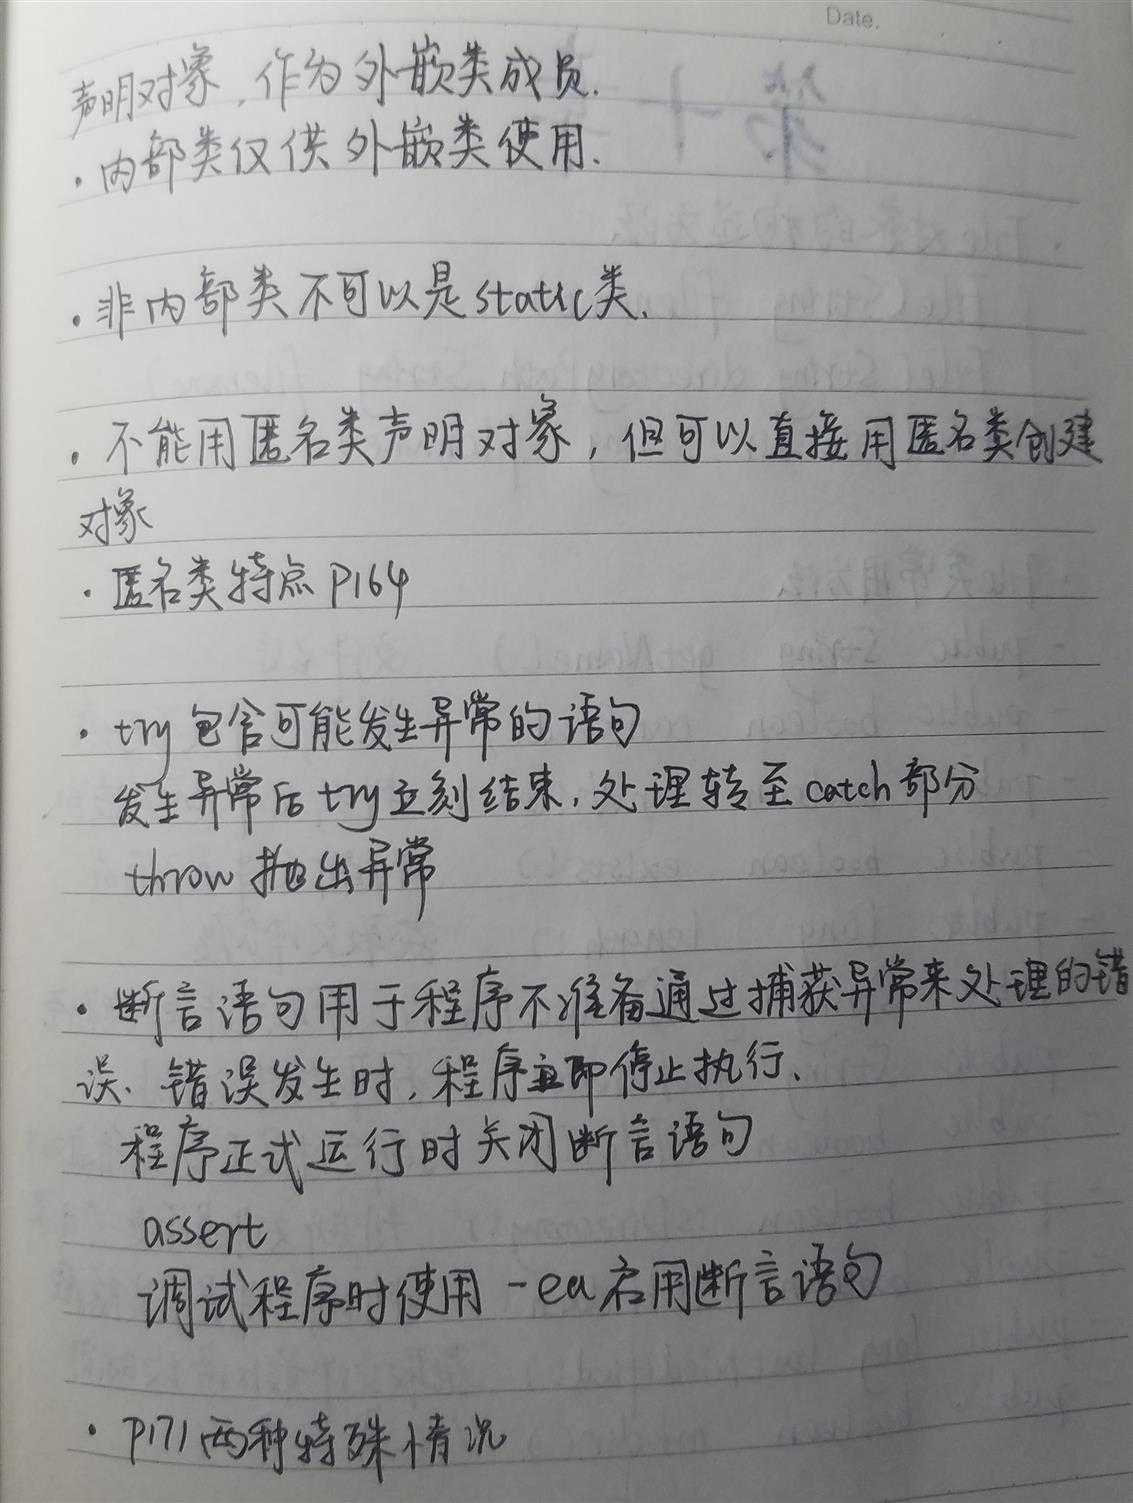 Date.
声明对象，作为外嵌类成员.
·内部类仅供外嵌类使用.
·非内部类不可以是static类.
·不能用匿名类声明对象，但可以直接用匿名类创建
对象
·匿名类特点 P164
·try包含可能发生异常的语句
发生异常后try立刻结束，处理转至catch部分
throw 抛出异常
·断言语句用于程序不准备通过捕获异常来处理的错
误、错误发生时，程序立即停止执行、
程序正式运行时关闭断言语句
assert
调试程序时使用 -ea启用断言语句
·P171两种特殊情况